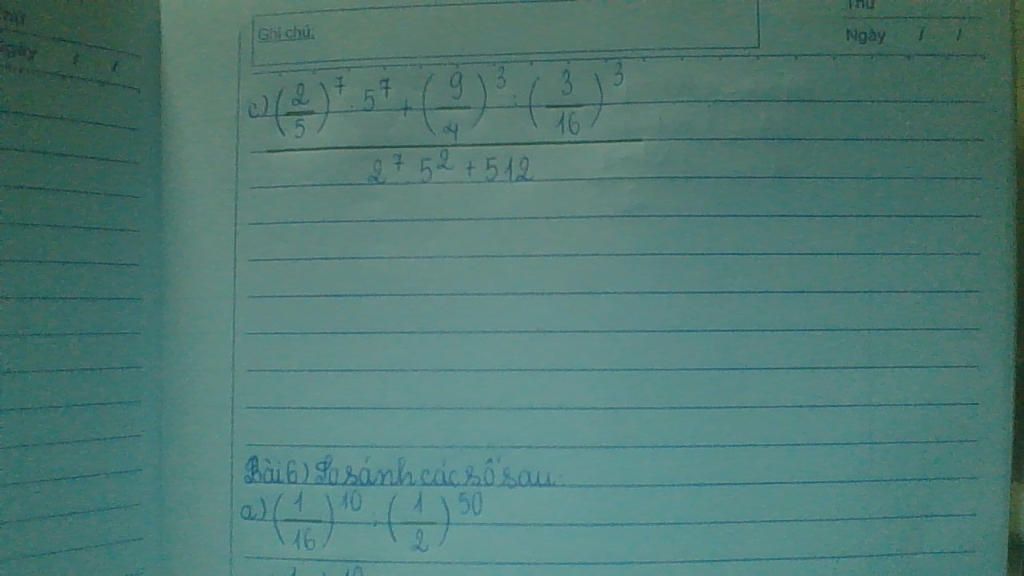 Thứ
Ngày / /
Ghi chú:
Thứ
Ngày / /
c) (2/5)^7 . 5^7 + (9/4)^3 : (3/16)^3
2^7 . 5^2 + 512
Bài 6) So sánh các số sau:
a) (1/16)^10 ; (1/2)^50